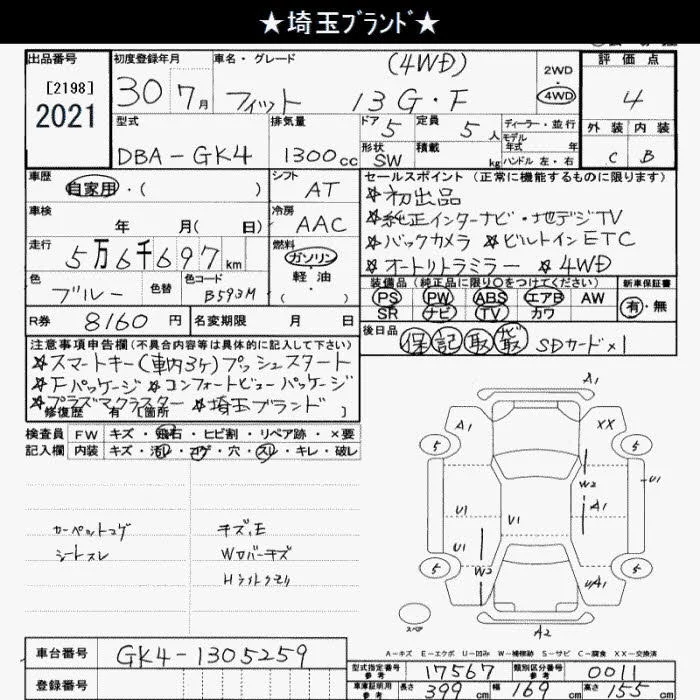 ★埼玉ブランド★
出品番号 初度登録年月 車名・グレード (4WD) 2WD 評価点
[2198] 30 7月 フィット 13G・F 4WD 4
2021
型式 排気量 ドア 5 定員 5人 ディーラー・並行 外装 内装
モデル年式 年式
DBA-GK4 1300cc 形状 SW 積載 kg ハンドル 左・右 C B
車歴 シフト セールスポイント (正常に機能するものに限ります)
自家用・( ) AT ☆初出品
車検 冷房 ☆純正インターナビ・地デジTV
年 月( 日) AAC ☆バックカメラ ☆ビルトインETC
走行 燃料 ☆オートリトラミラー ☆4WD
5万6千697km ガソリン
軽・油
( )
色 色替 色コード 装備品(純正品に限り〇をつけてください) 新車保証書
ブルー B593M PS PW ABS エアB AW 有・無
SR ナビ TV カワ
R券 8160円 名変期限 月 日 後日品
保 記 取 ナビ取 SDカード×1
注意事項申告欄(不具合内容等は具体的に記入して下さい)
☆スマートキー(車内3ヶ)プッシュスタート
☆Fパッケージ ☆コンフォートビューパッケージ
☆プラズマクラスター ☆埼玉ブランド
修復歴 有 [箇所 ]
検査員 FW キズ・飛石・ヒビ割・リペア跡・×要
記入欄 内装 キズ・汚レ・コゲ・穴・スレ・キレ・破レ
カーペットコゲ キズ、E
シートスレ Wカバーキズ
Hライトクモリ
A1
A1 XX
5 5
W2
U1 V1 A1 U1
U1
W2
5 UA1 5
スペア
A2
A-キズ E-エクボ U-凹み W-補修跡 S-サビ C-腐食 XX-交換済
車台番号 GK4-1305259 型式指定番号 参考 17567 類別区分番号 参考 0011
登録番号 車庫証明用 参考 長さ 399cm 幅 169cm 高さ 155cm